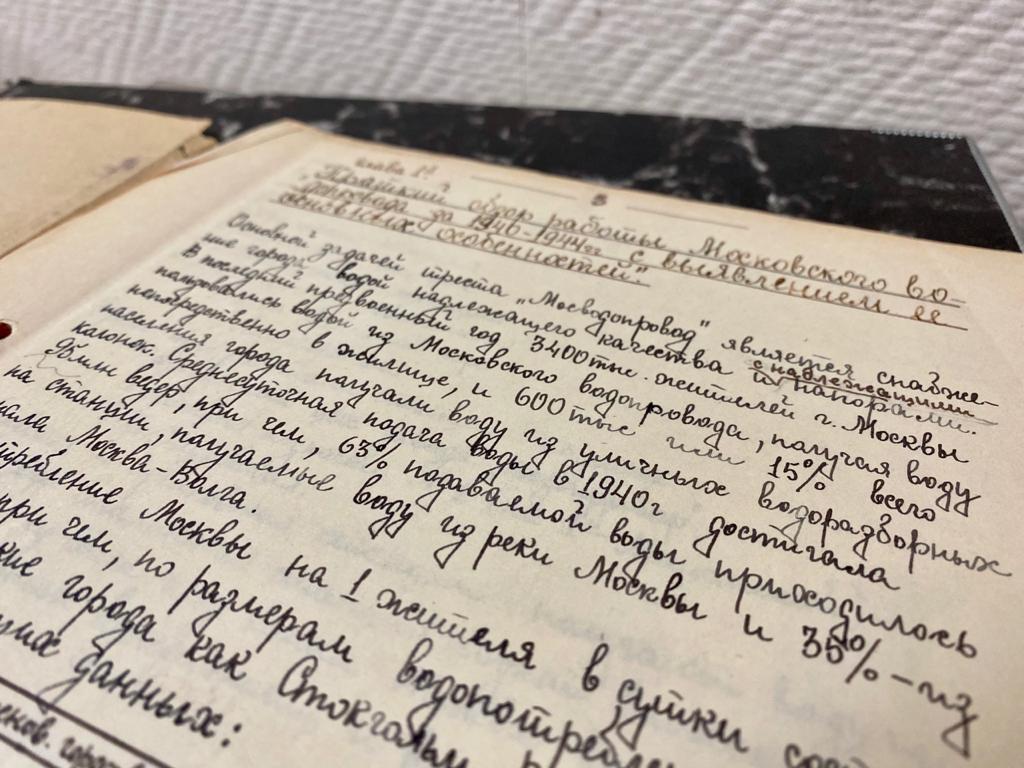 глава II
5
"Краткий обзор работы Московского во-
допровода за 1940-1944гг с выявлением ее
основных особенностей".
Основной задачей треста "Мосводопровод" является снабже-
ние города водой надлежащего качества и с надлежащими напорами.
В последний предвоенный год 3400 тыс. жителей г. Москвы
пользовались водой из Московского водопровода, получая воду
непосредственно в жилище, и 600 тыс или 15% всего
населения города получали воду из уличных водоразборных
колонок. Среднесуточная подача воды в 1940г достигала
млн ведер, при чем, 65% подаваемой воды приходилось
на станции, получаемые воду из реки Москвы и 35%-из
нала Москва-Волга.
требление Москвы на 1 жителя в сутки
при чем, по размерам
города как Стокгольм
данных: